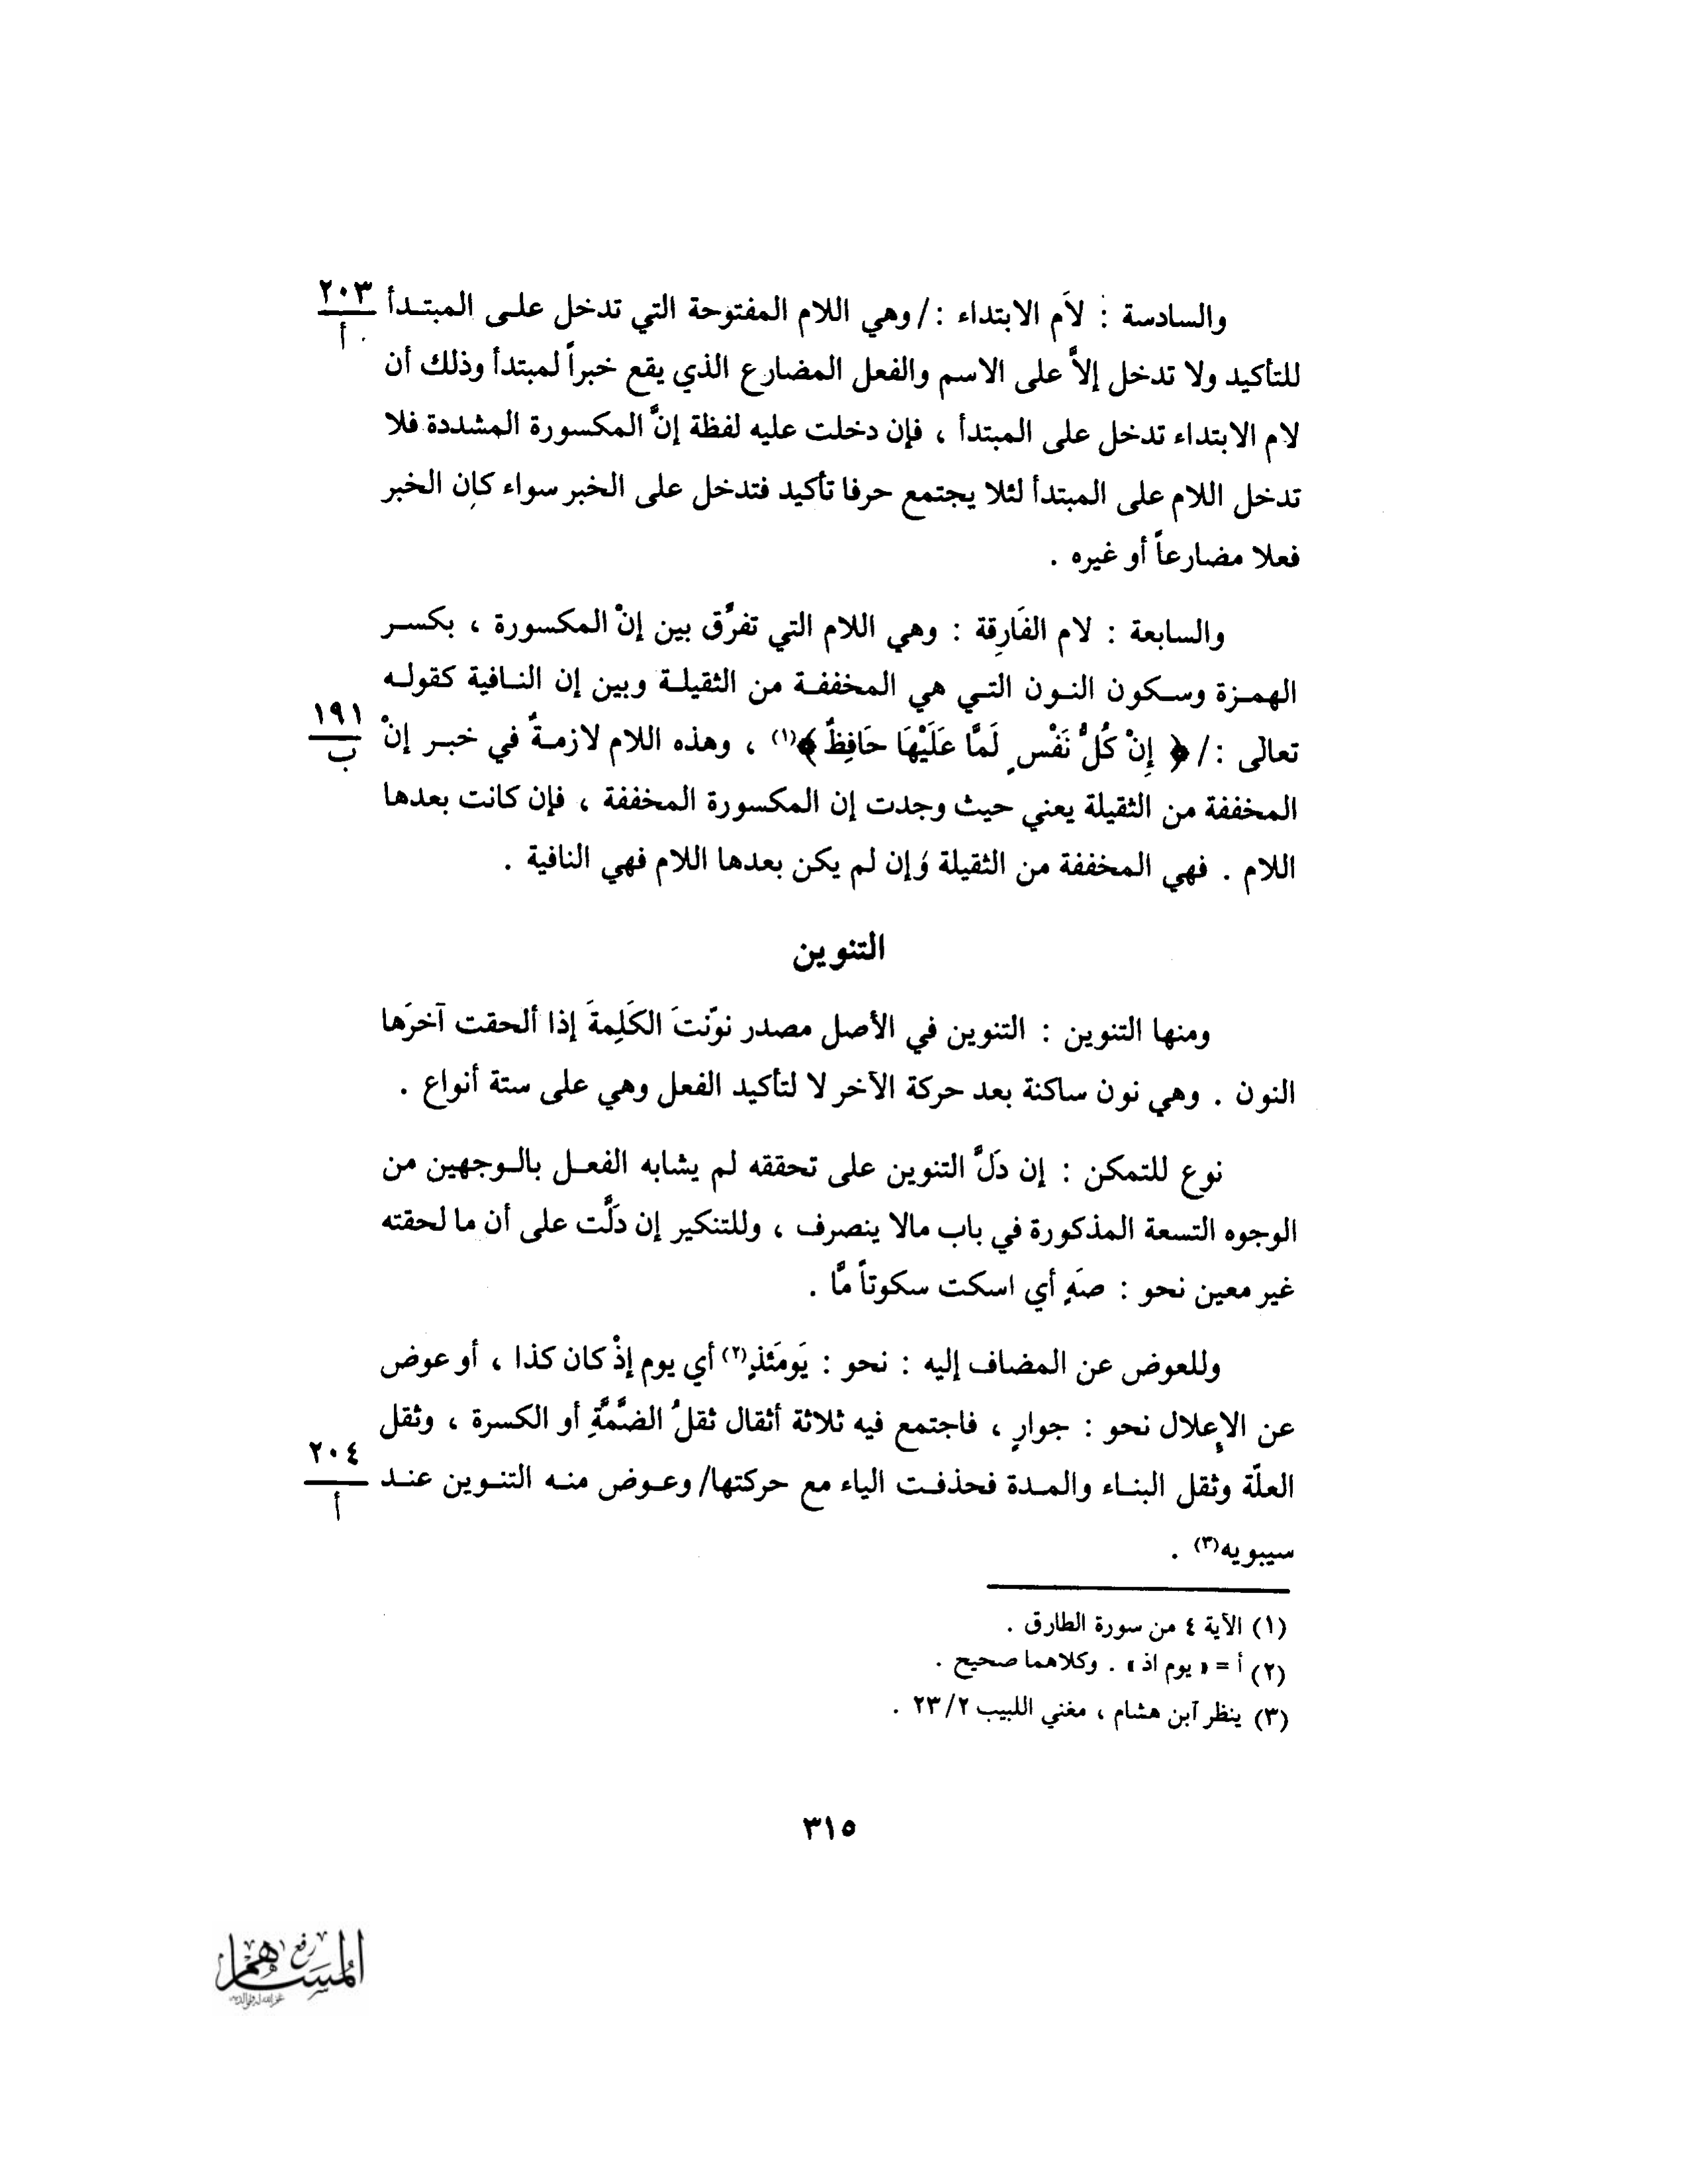 والسادسة : لاَم الابتداء : / وهي اللام المفتوحة التي تدخل على المبتدأ
٢٠٣
أ
للتأكيد ولا تدخل إلاَّ على الاسم والفعل المضارع الذي يقع خبراً لمبتدأ وذلك أن
لام الابتداء تدخل على المبتدأ ، فإن دخلت عليه لفظة إنَّ المكسورة المشددة فلا
تدخل اللام على المبتدأ لئلا يجتمع حرفا تأكيد فتدخل على الخبر سواء كان الخبر
فعلا مضارعاً أو غيره .
والسابعة : لام الفَارِقة : وهي اللام التي تفرِّق بين إنْ المكسورة ، بكسر
الهمزة وسكون النون التي هي المخففة من الثقيلة وبين إن النافية كقوله
تعالى : / ﴿ إِنْ كُلُّ نَفْسٍ لَمَّا عَلَيْهَا حَافِظٌ ﴾(١) ، وهذه اللام لازمةٌ في خبر إنْ
١٩١
ب
المخففة من الثقيلة يعني حيث وجدت إن المكسورة المخففة ، فإن كانت بعدها
اللام . فهي المخففة من الثقيلة وَإن لم يكن بعدها اللام فهي النافية .
التنوين
ومنها التنوين : التنوين في الأصل مصدر نوّنتَ الكَلِمةَ إذا ألحقت آخرَها
النون . وهي نون ساكنة بعد حركة الآخر لا لتأكيد الفعل وهي على ستة أنواع .
نوع للتمكن : إن دَلَّ التنوين على تحققه لم يشابه الفعل بالوجهين من
الوجوه التسعة المذكورة في باب مالا ينصرف ، وللتنكير إن دَلَّت على أن ما لحقته
غير معين نحو : صَهٍ أي اسكت سكوتاً مَّا .
وللعوض عن المضاف إليه : نحو : يَومَئذٍ(٢) أي يوم إذْ كان كذا ، أو عوض
عن الإعلال نحو : جوارٍ ، فاجتمع فيه ثلاثة أثقال ثقلُ الضَّمَّةِ أو الكسرة ، وثقل
العلّة وثقل البناء والمدة فحذفت الياء مع حركتها/ وعوض منه التنوين عند
٢٠٤
أ
سيبويه(٣) .
(١) الآية ٤ من سورة الطارق .
(٢) أ = « يوم اذ » . وكلاهما صحيح .
(٣) ينظر آبن هشام ، مغني اللبيب ٢/ ٢٣ .
٣١٥
رفع
المساهم